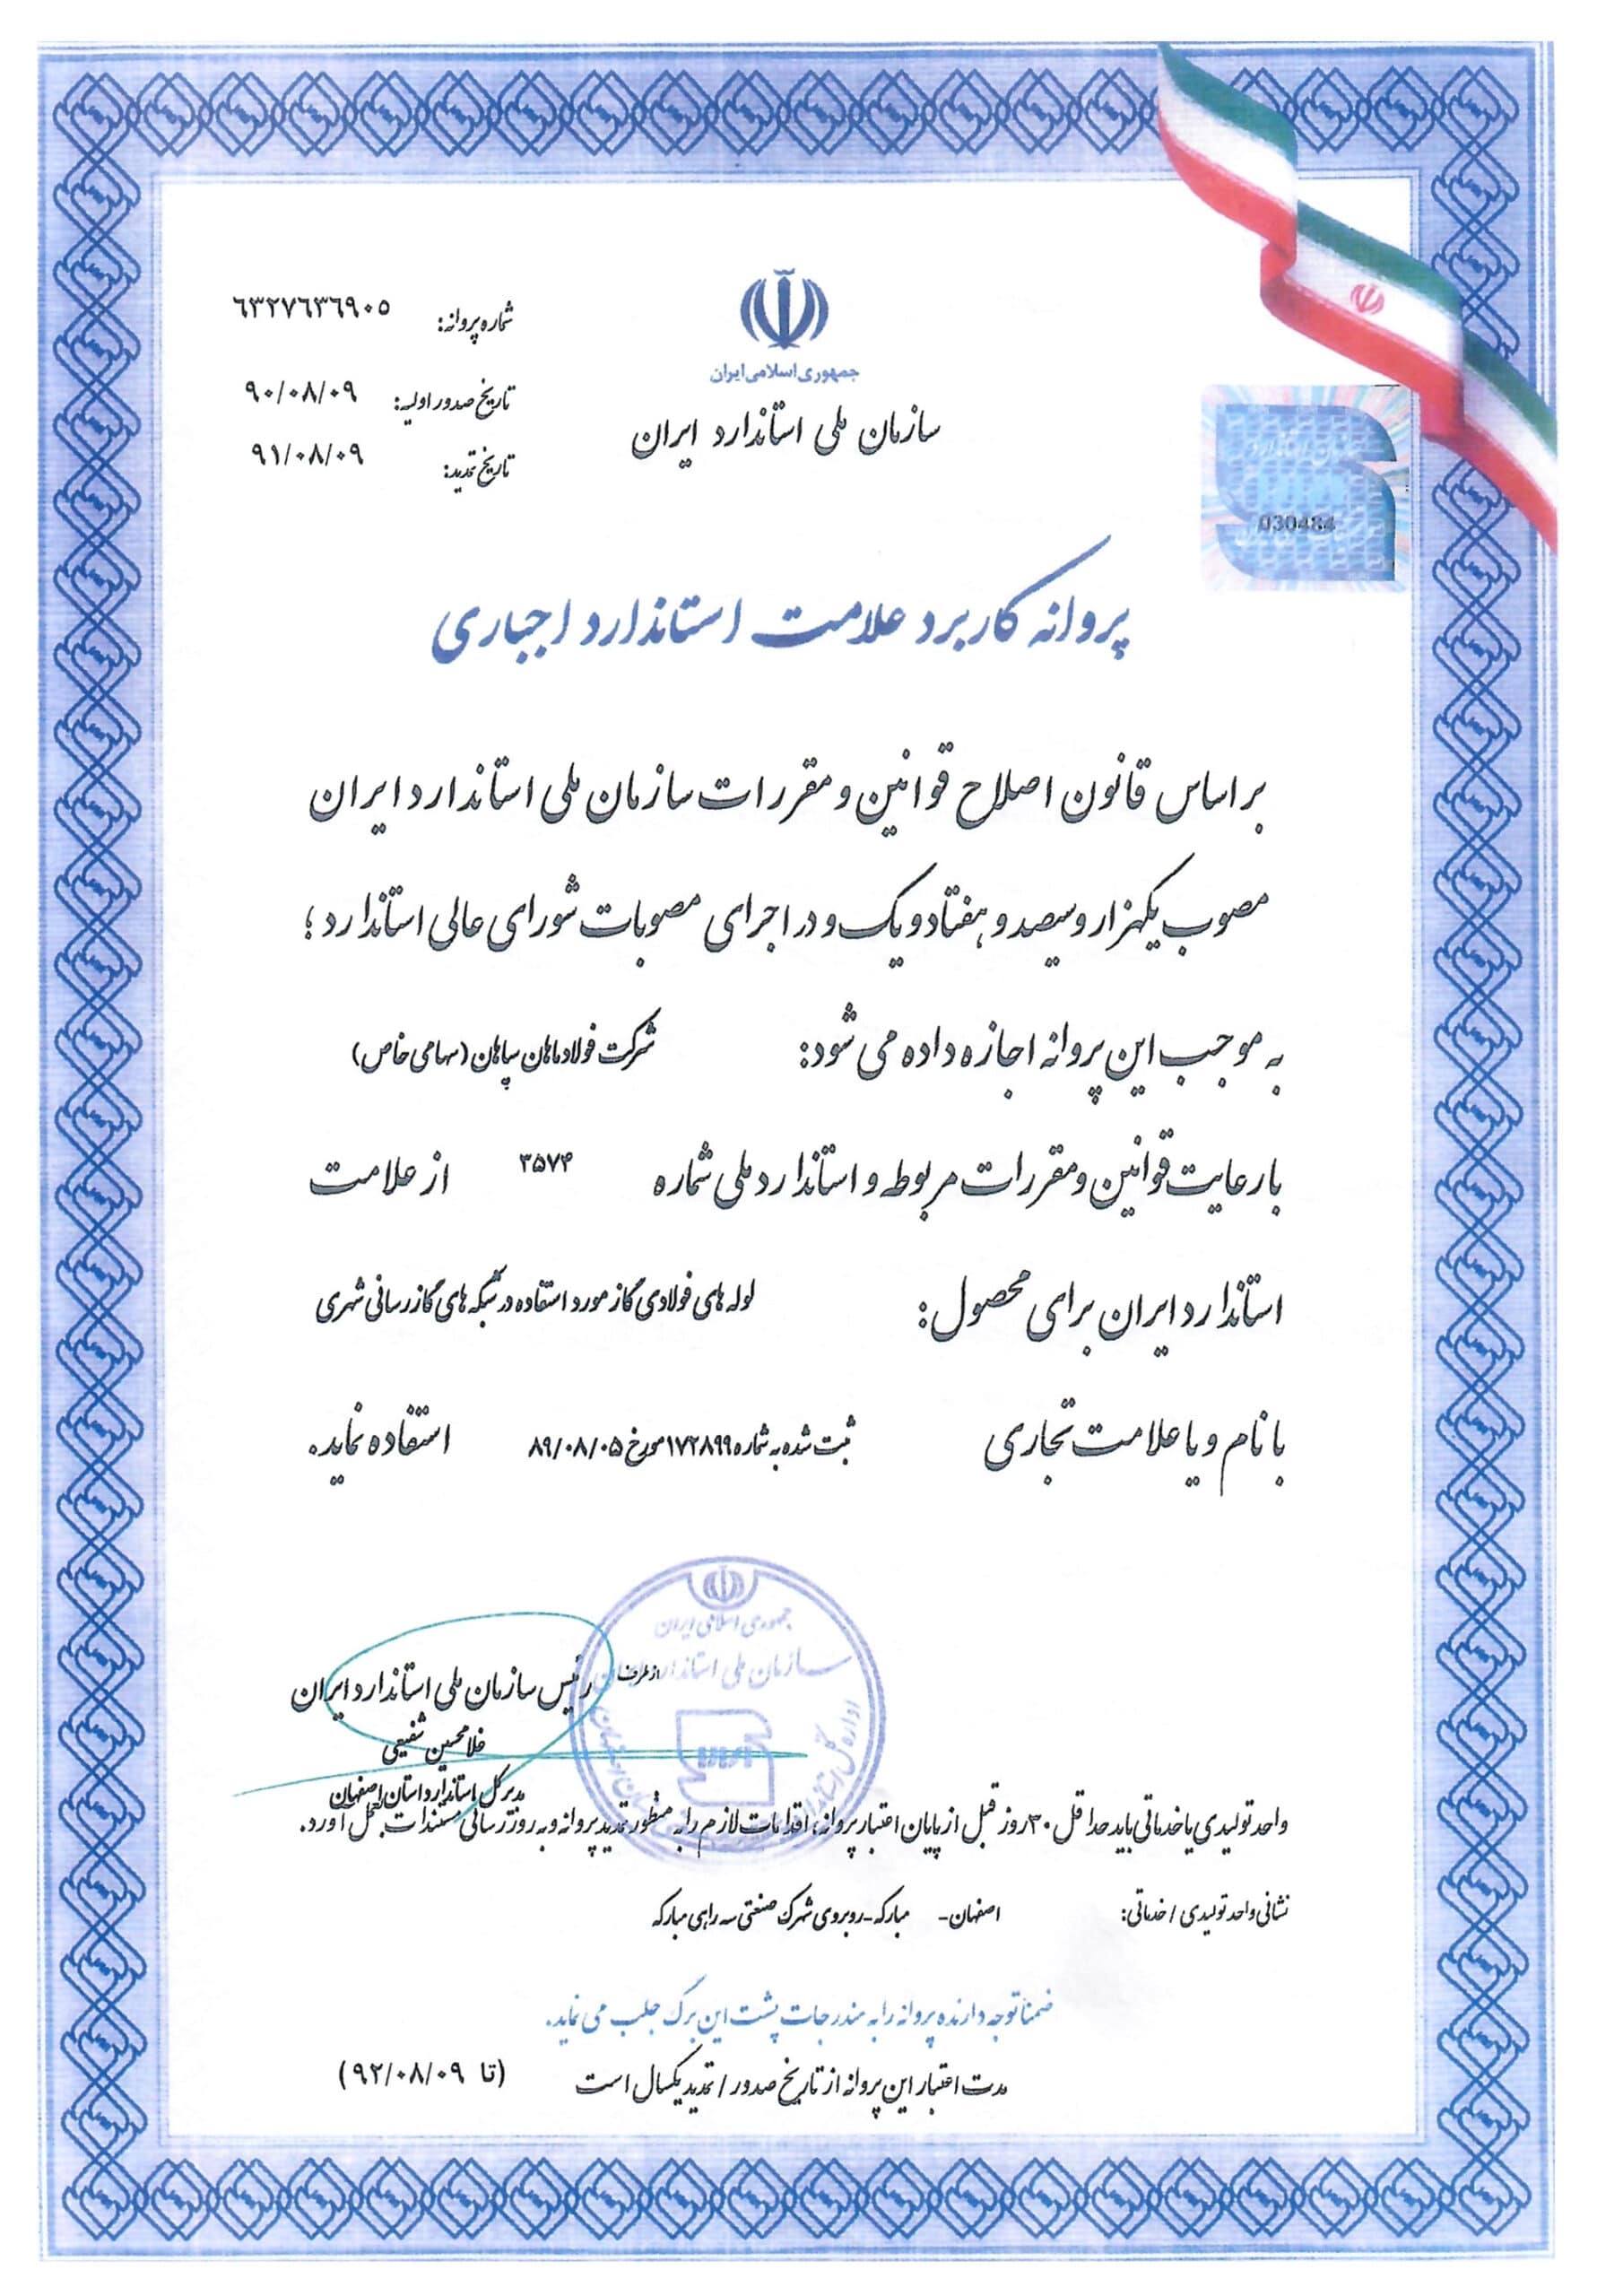 جمهوری اسلامی ایران
سازمان ملی استاندارد ایران
شماره پروانه: ۶۳۲۷۶۳۶۹۰۵
تاریخ صدور اولیه: ۹۰/۰۸/۰۹
تاریخ تمدید: ۹۱/۰۸/۰۹
030484
پروانه کاربرد علامت استاندارد اجباری
بر اساس قانون اصلاح قوانین و مقررات سازمان ملی استاندارد ایران
مصوب یکهزار و سیصد و هفتاد و یک و در اجرای مصوبات شورای عالی استاندارد؛
به موجب این پروانه اجازه داده می شود: شرکت فولاد ماهان سپاهان (سهامی خاص)
با رعایت قوانین و مقررات مربوط و استاندارد ملی شماره ۳۵۷۴ از علامت
استاندارد ایران برای محصول: لوله های فولادی گاز مورد استفاده در شبکه های گازرسانی شهری
با نام و یا علامت تجاری ثبت شده به شماره ۱۷۲۸۹۹ مورخ ۸۹/۰۸/۰۵ استفاده نماید.
جمهوری اسلامی ایران
سازمان ملی استاندارد ایران
از طرف رئیس سازمان ملی استاندارد ایران
غلامحسین شفیعی
مدیر کل استاندارد استان اصفهان
واحد تولیدی یا خدماتی باید حداقل ۳۰ روز قبل از پایان اعتبار پروانه، اقدامات لازم را به منظور تمدید پروانه و به روز رسانی مستندات بعمل آورد.
نشانی واحد تولیدی / خدماتی: اصفهان- مبارکه-روبروی شهرک صنعتی سه راهی مبارکه
ضمنا توجه دارنده پروانه را به مندرجات پشت این برگ جلب می نماید.
مدت اعتبار این پروانه از تاریخ صدور / تمدید یکسال است (تا ۹۲/۰۸/۰۹)